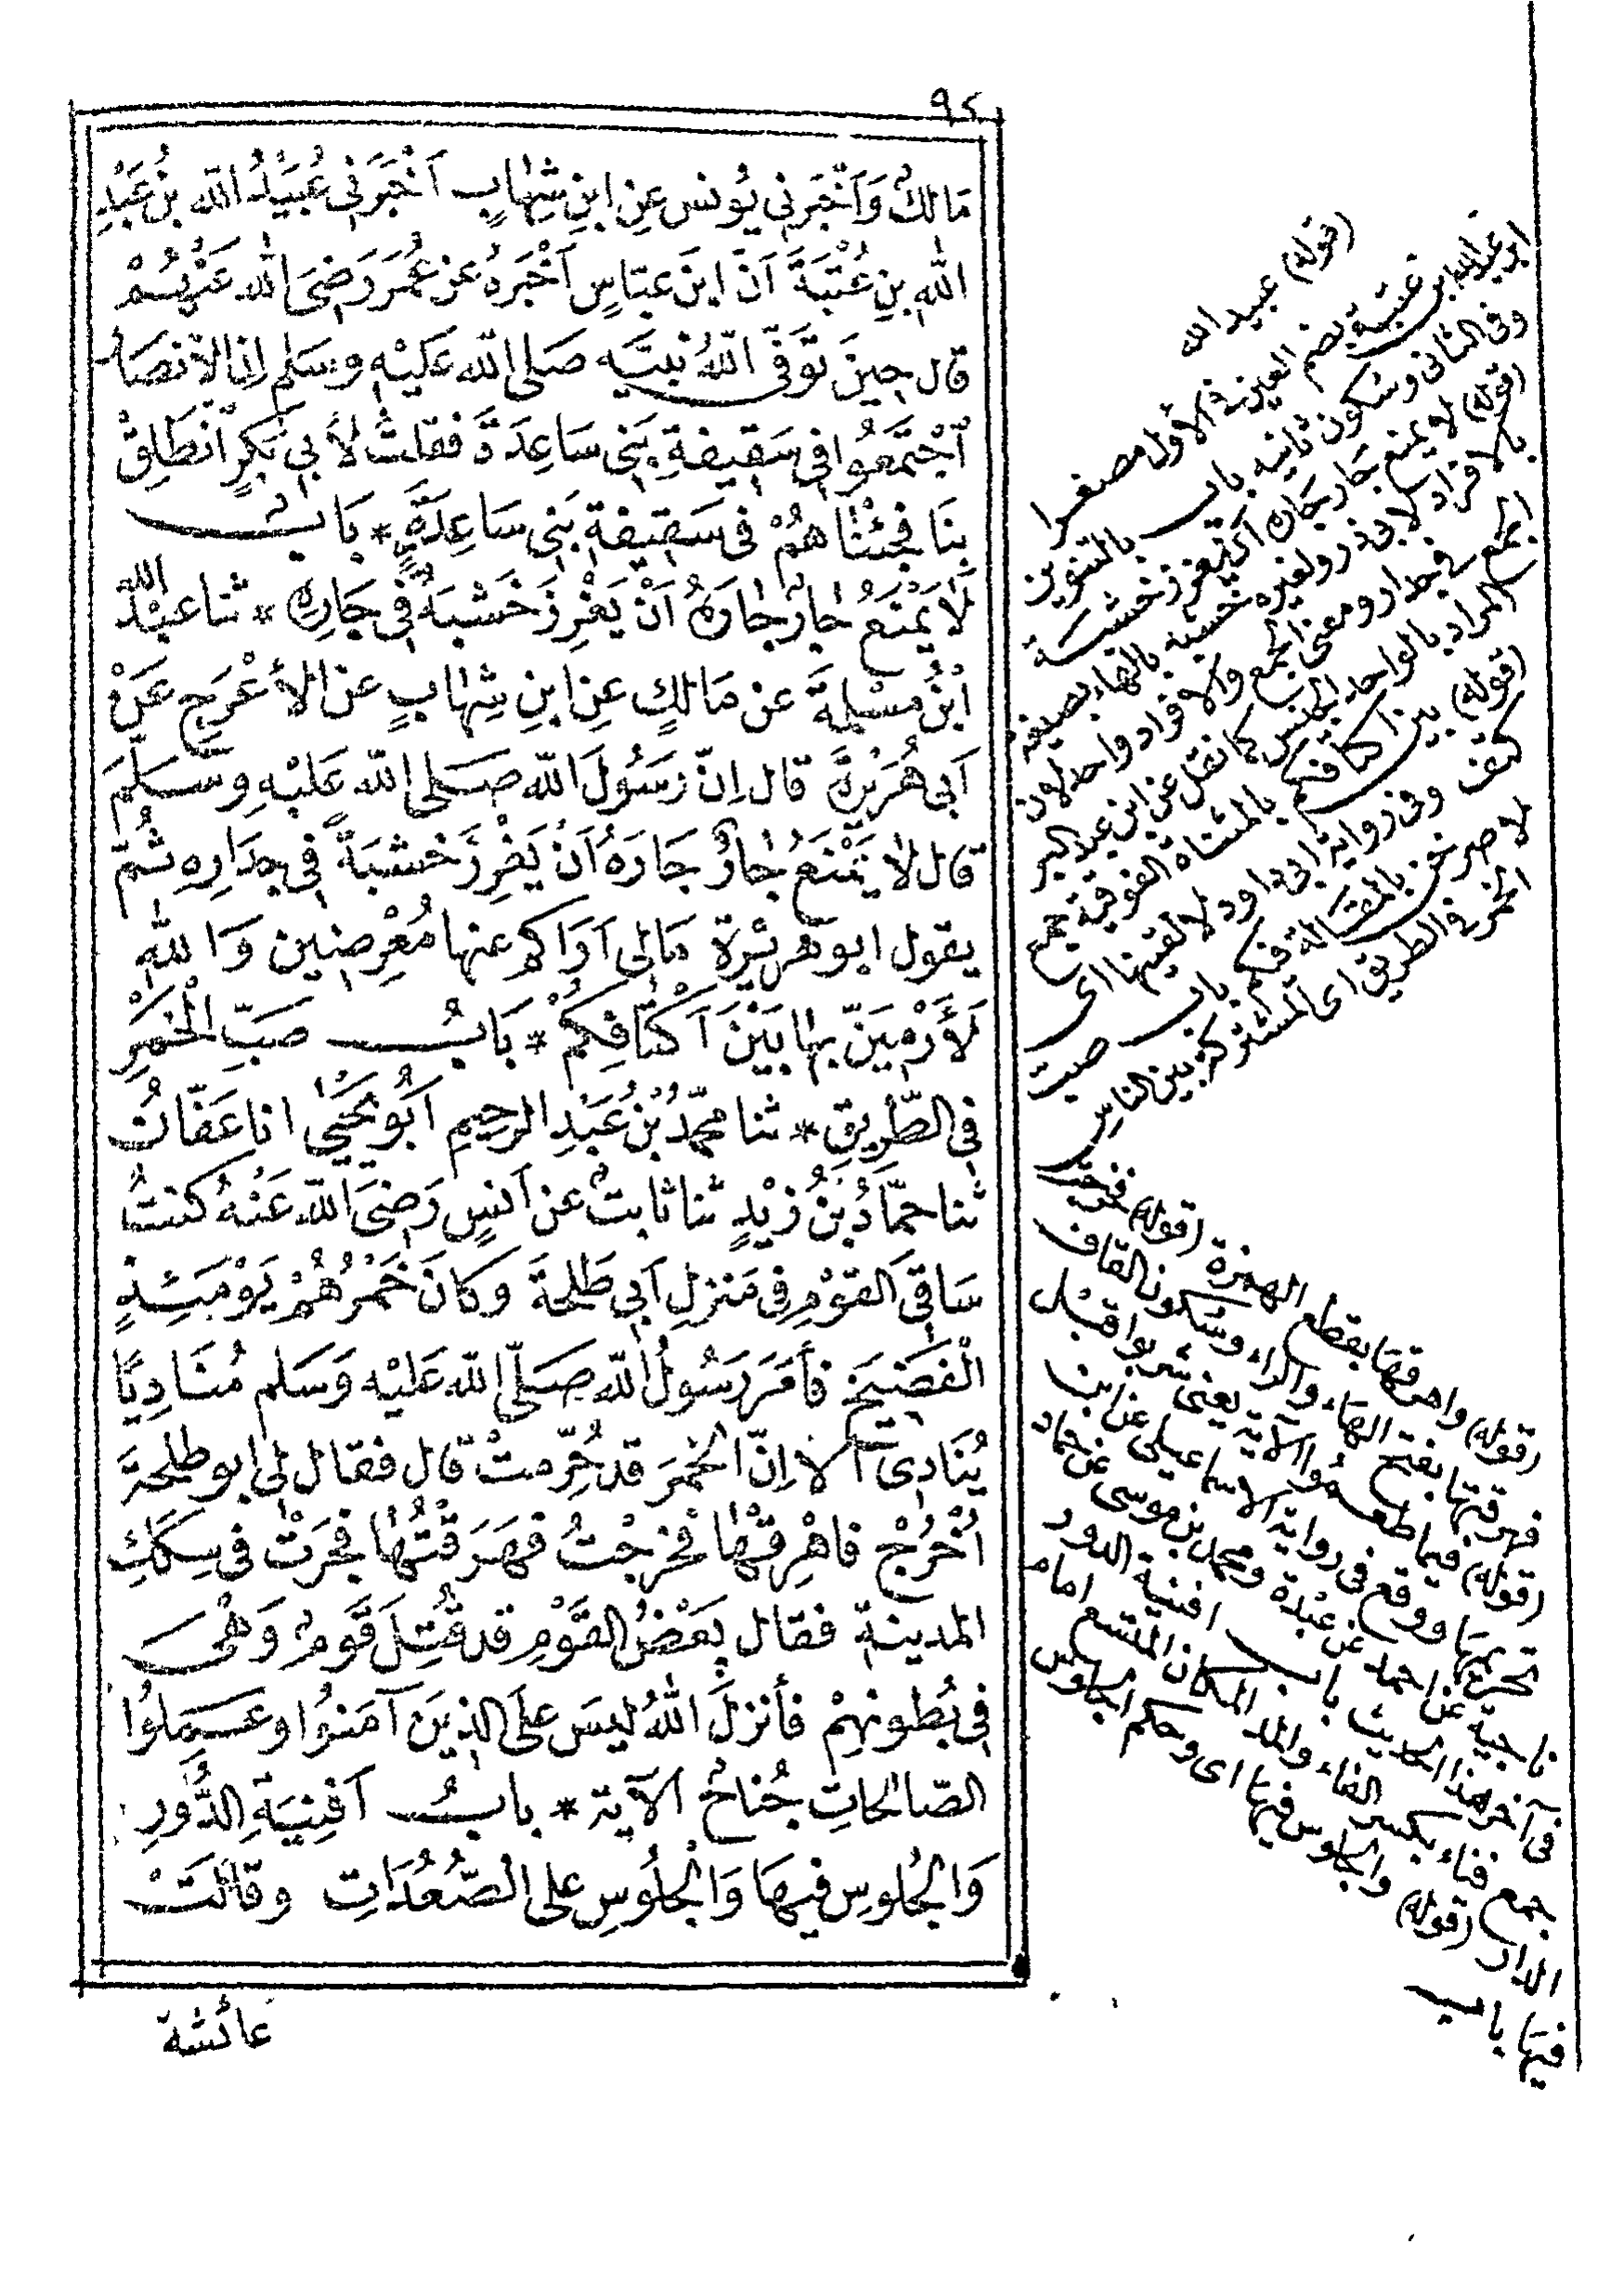 ٩٤
مَالِكٌ وَأَخْبَرَنِي يُونس عَنِ ابْنِ شِهَابٍ أَخْبَرَنِي عُبَيْدُ اللّٰه بْنُ عَبْدِ
اللّٰهِ بْنِ عُتْبَةَ أَنَّ ابْنَ عَبَّاسٍ أَخْبَرَهُ عَنْ عُمَرَ رَضِيَ اللّٰه عَنْهُمْ
قال حِينَ تَوَفَّى اللّٰهُ نَبِيَّه صَلى اللّٰه عَلَيْهِ وسَلم إنّ الأنصَارَ
اجْتَمَعُوا فِي سَقِيفَةِ بَنِي سَاعِدَةَ فقلتُ لأَبِي بَكرٍ انْطَلِقْ
بِنَا فَجِئْنَاهُمْ فِي سَقِيفةِ بَنِي سَاعِدَةَ * بَابٌ
لَا يَمْنَعُ جَارٌ جَارَهُ أَنْ يَغْرِزَ خَشَبَةً فِي جِدَارِهِ * ثنا عبْدُ اللّٰه
ابْنُ مَسْلَمَةَ عن مَالكٍ عَنِ ابنِ شِهَابٍ عَنِ الأَعْرَجِ عَنْ
أَبِي هُرَيْرَةَ قال إنّ رَسُولَ اللّٰه صَلى اللّٰه عَلَيْهِ وسَلَّمَ
قال لا يَمْنَعُ جَارٌ جَارَهُ أَنْ يَغْرِزَ خَشبَةً فِي جِدَارِهِ ثُمّ
يقول ابو هُريْرة مَالي أَرَاكم عنها مُعْرِضِين وَاللّٰهِ
لَأَرْمِيَنّ بِهَا بَيْنَ أَكْتَافِكُمْ * بَابُ صَبِّ الْخَمْرِ
فِي الطَّرِيقِ * ثنا محمّدُ بْنُ عَبْدِ الرحِيمِ أَبُو يَحْيَى انا عَفّانُ
ثنا حَمَّادُ بْنُ زَيْدٍ ثنا ثابتٌ عن أَنَسٍ رَضِيَ اللّٰه عَنْهُ كنتُ
سَاقِيَ القَوْمِ فِي مَنزِلِ أَبِي طَلحَةَ وكَانَ خَمْرُهُمْ يَوْمَئِذٍ
الْفَضِيخَ فأَمَرَ رَسُولُ اللّٰه صَلّى اللّٰه عَلَيْه وَسَلم مُنَادِيًا
يُنَادِي أَلا إنّ الخَمرَ قد حُرِّمتْ قال فقال لي ابو طلحةَ
اخْرُجْ فاهْرِقْهَا فَخَرَجْتُ فهَرَقْتُهَا فجَرَتْ فى سِكَكِ
المدينةِ فقال بعْضُ القَوْمِ قد قُتِلَ قَوْمٌ وَهْيَ
فِي بُطُونِهِمْ فأنزلَ اللّٰهُ ليسَ علَى الذِينَ آمَنوُا وعَمِلُوا
الصّالحاتِ جُناحٌ الآيةَ * بابُ أَفْنِيَةِ الدُّورِ
وَالجُلوسِ فيهَا وَالْجُلُوسِ على الصُّعُدَاتِ وقالتْ
عائشة
(قوله) عبيد الله
ابن عبد الله ابن عتبة بضم العين فى الأول مصغرا
وفى الثانى وسكون ثانيه باب بالتنوين
(قوله) لا يمنع جار جاره أن يغرز خشبة
بالافراد لابى ذر ولغيره خشبه بالهاء بصيغة
الجمع فى جداره ومعنى الجمع والافراد واحد لان
المراد بالواحد الجنس كما نقل عن ابن عبد البر
(قوله) بين اكتافكم بالمثناة الفوقية جمع
كتف وفى رواية ابى داود لا لقينها اى
لاصرخن بالمقالة فيكم باب صب
الخمر فى الطريق اى المشتركة بين الناس
(قوله) فخرجت
(قوله) واهرقها بقطع الهمزة
فهرقتها بفتح الهاء والراء وسكون القاف
(قوله) فيما طعموا الآية يعنى شربوا قبل
تحريمها ووقع فى رواية الاسماعيلى عن ابن
ناجية عن احمد عن عبدة ومحمد بن موسى عن حماد
فى آخر هذا الحديث باب افنية الدور
جمع فناء بكسر الفاء والمد المكان المتسع امام
الدار (قوله) والجلوس فيها اى وحكم الجلوس
فيها باب